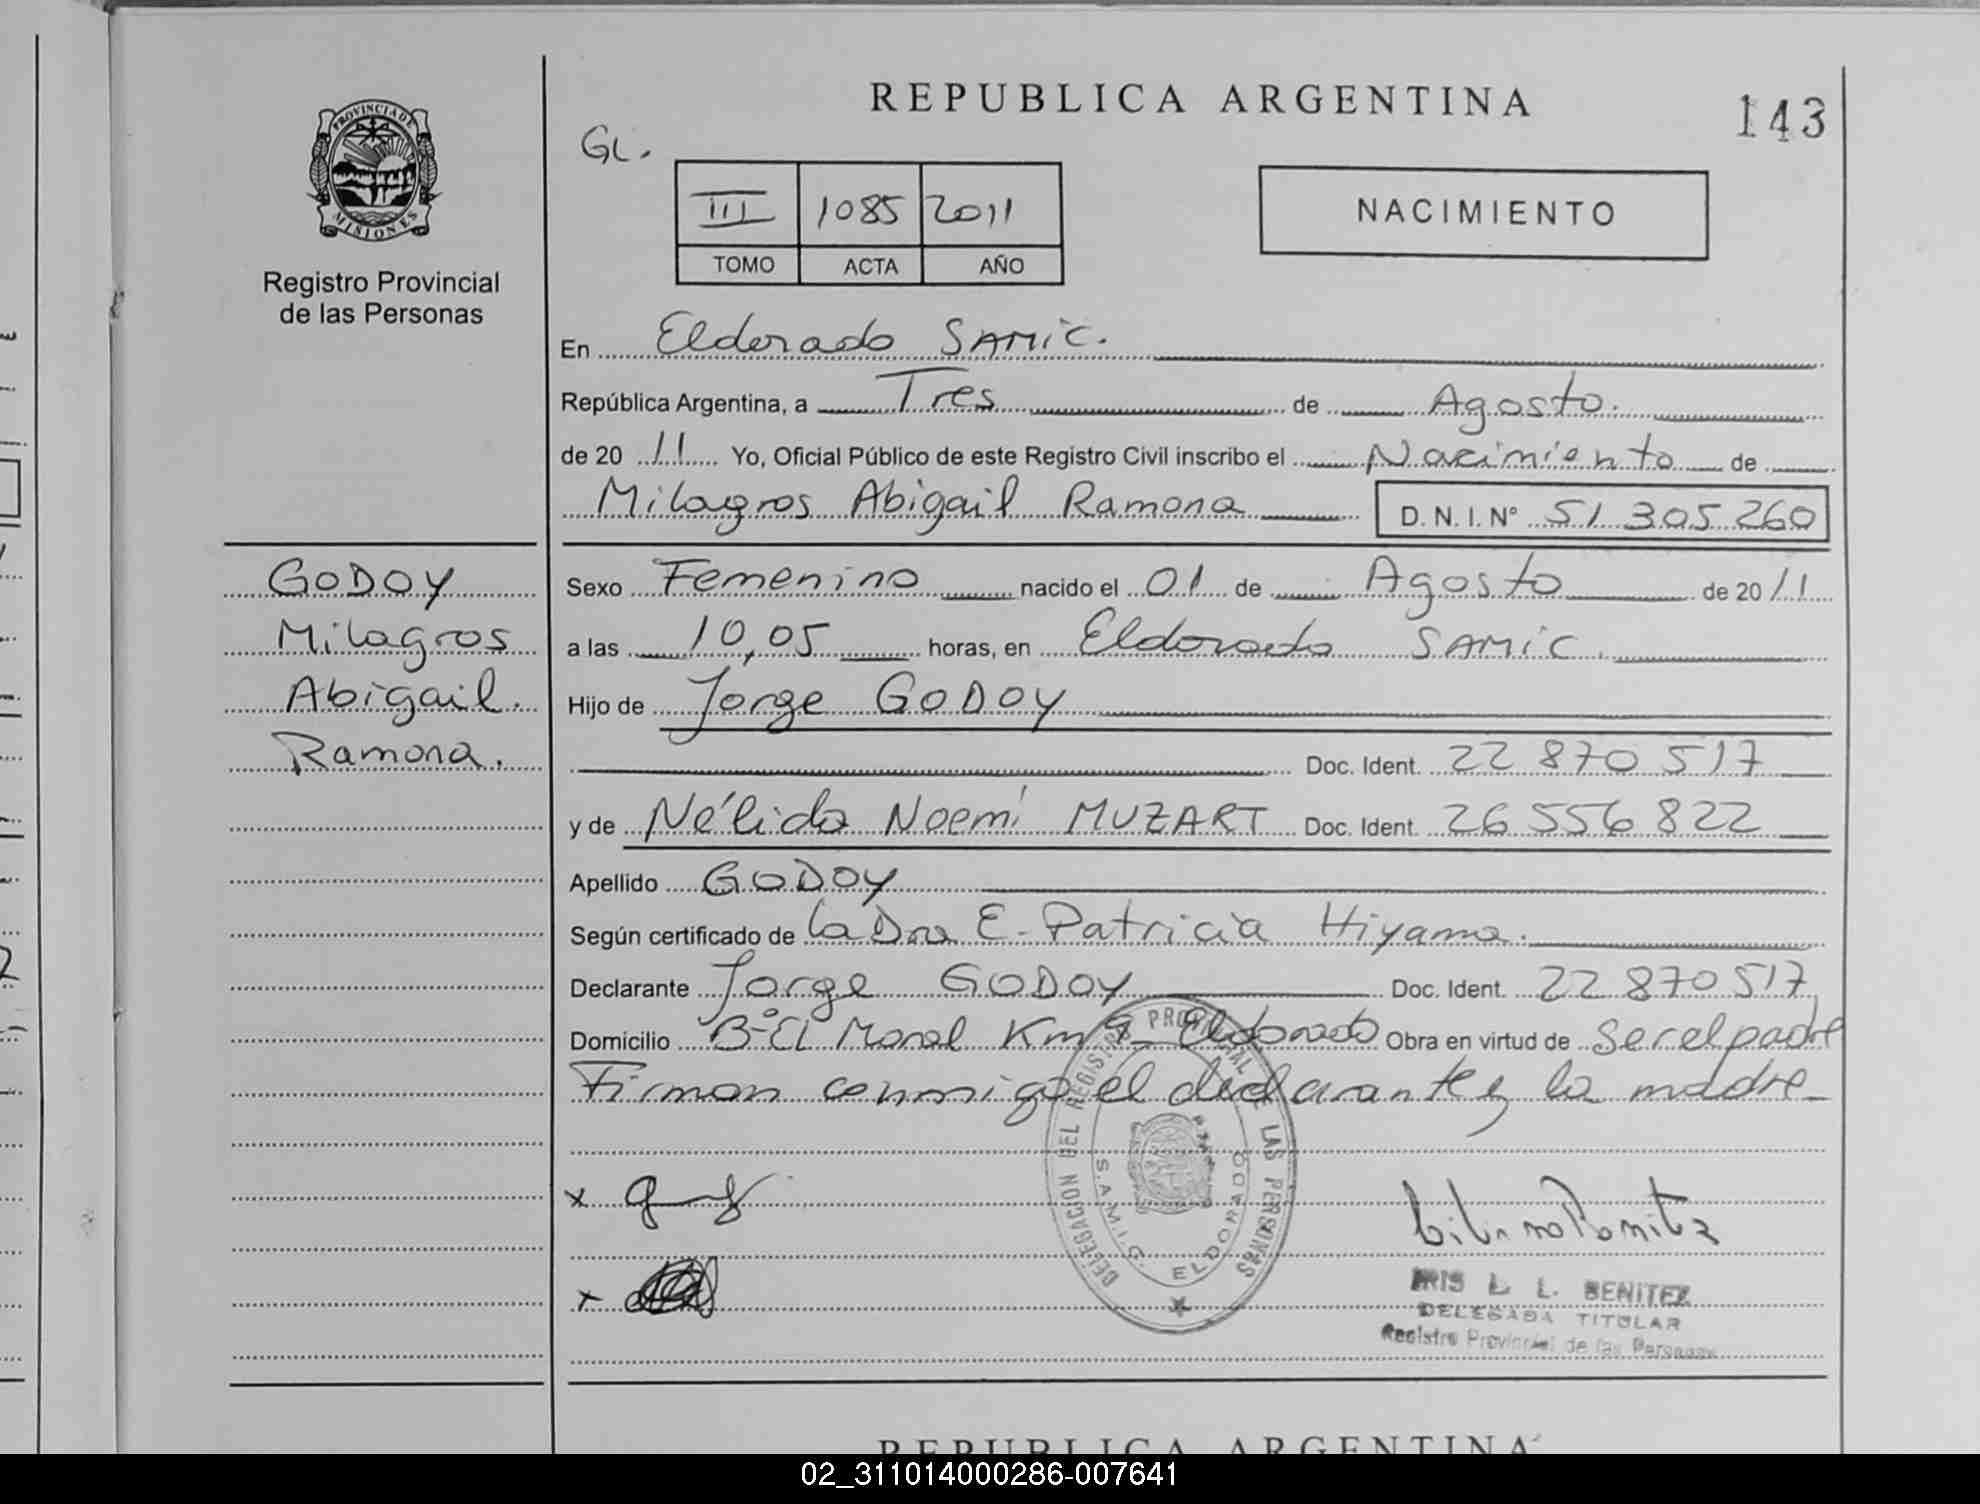 REPUBLICA ARGENTINA
143
PROVINCIA DE
MISIONES
Registro Provincial
de las Personas
GL.
III 1085 2011
TOMO ACTA AÑO
NACIMIENTO
En Eldorado SAMIC.
República Argentina, a Tres de Agosto.
de 20 11 Yo, Oficial Público de este Registro Civil inscribo el Nacimiento de
Milagros Abigail Ramona D. N. I. N° 51 305 260
GODOY
Milagros
Abigail.
Ramona.
Sexo Femenino nacido el 01 de Agosto de 20 11
a las 10,05 horas, en Eldorado SAMIC.
Hijo de Jorge GODOY
Doc. Ident. 22 870 517
y de Nélida Noemí MUZART Doc. Ident. 26 556 822
Apellido GODOY
Según certificado de la Dra E. Patricia Hiyama.
Declarante Jorge GODOY Doc. Ident. 22 870 517
Domicilio B° El Moral Km 8 - Eldorado Obra en virtud de ser el padre
Firman conmigo el declarante y la madre
DELEGACION DEL REGISTRO PROVINCIAL DE LAS PERSONAS
S.A.M.I.C. ELDORADO
x
x
IRIS L. L. BENITEZ
DELEGADA TITULAR
Registro Provincial de las Personas
REPUBLICA ARGENTINA
02_311014000286-007641